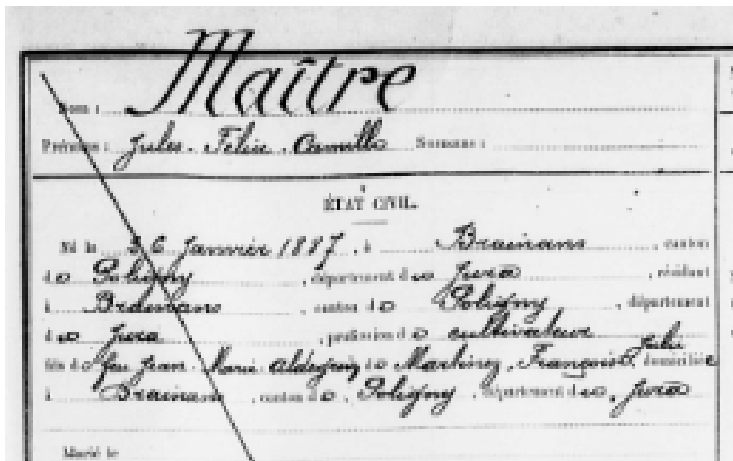 Nom : Maître
Prénoms : Jules Felix Camille Surnoms :
ÉTAT CIVIL.
Né le 26 Janvier 1887, à Brainans, canton
de Poligny, département du Jura, résidant
à Brainans, canton de Poligny, département
du Jura, profession de cultivateur
fils de feu Jean Marie et de Martinez, Françoise Julie domiciliée
à Brainans, canton de Poligny, département du Jura
Marié le